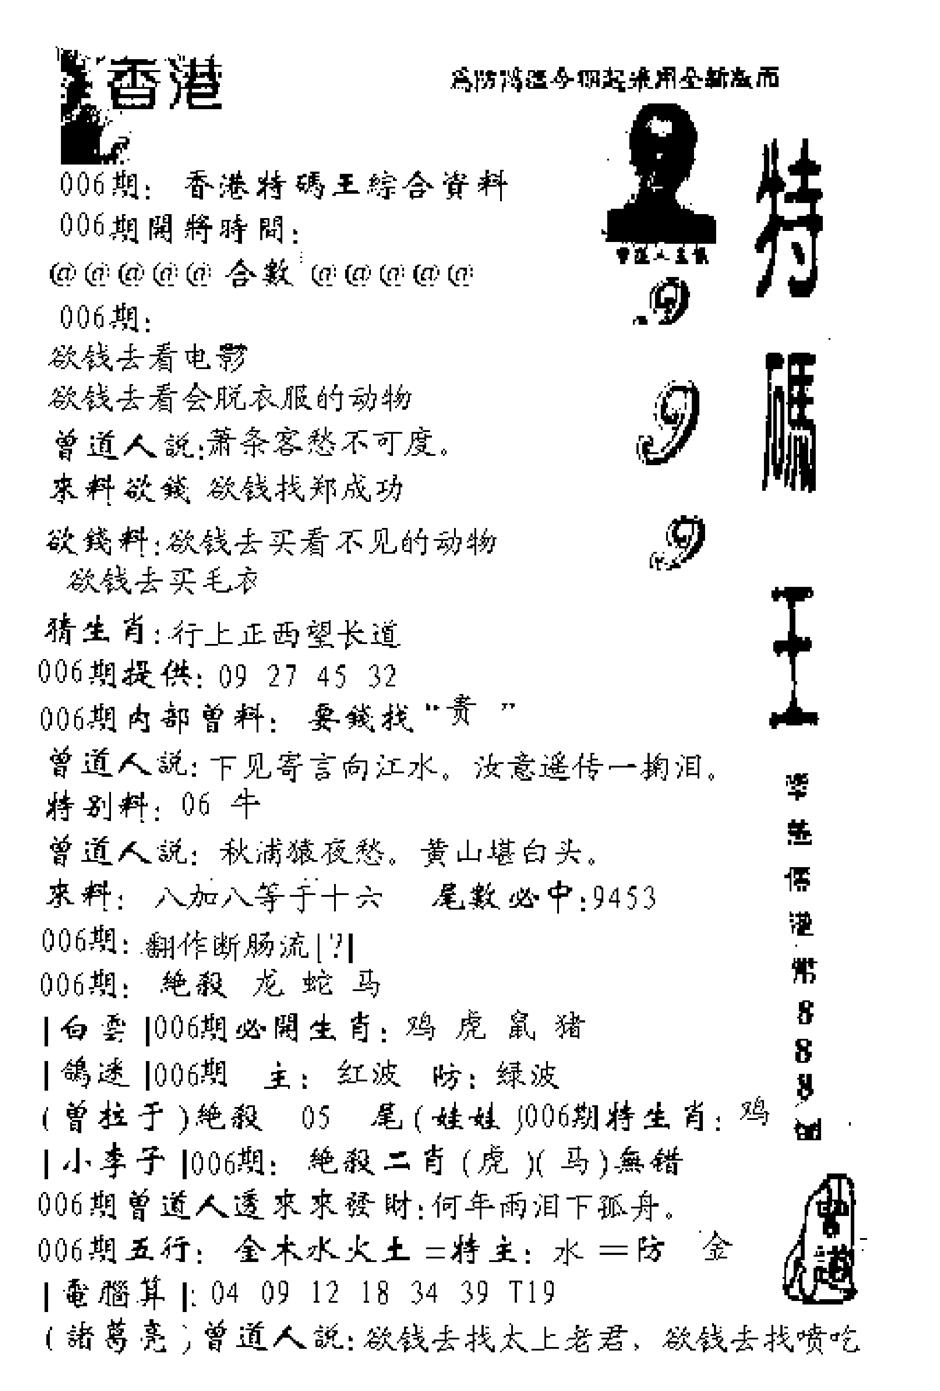 香港
為防濫今期起采用全新版面
006期： 香港特碼王綜合資料
006期開將時間：
@@@@@ 合數 @@@@@
006期：
欲钱去看电影
欲钱去看会脱衣服的动物
曾道人説:萧条客愁不可度。
來料欲錢 欲钱找郑成功
欲錢料:欲钱去买看不见的动物
欲钱去买毛衣
猜生肖:行上正西望长道
006期提供: 09 27 45 32
006期内部曾料： 要錢找“贵 ”
曾道人説: 下见寄言向江水。汝意遥传一掬泪。
特别料: 06 牛
曾道人説: 秋浦猿夜愁。黄山堪白头。
來料: 八加八等于十六 尾數必中:9453
006期: 翻作断肠流[?]
006期: 絶殺 龙 蛇 马
|白雲|006期必開生肖: 鸡 虎 鼠 猪
|鴿迷|006期 主: 红波 防: 绿波
(曾拉于)絶殺 05 尾(娃娃)006期特生肖: 鸡
|小李子|006期: 絶殺二肖(虎)(马)無错
006期曾道人透來來發財:何年雨泪下孤舟。
006期五行: 金木水火土=特主: 水 =防 金
|電腦算|: 04 09 12 18 34 39 T19
(諸葛亮)曾道人説:欲钱去找太上老君，欲钱去找喷吃
特碼王
曾道人主供
9
9
9
港幣888
曾道